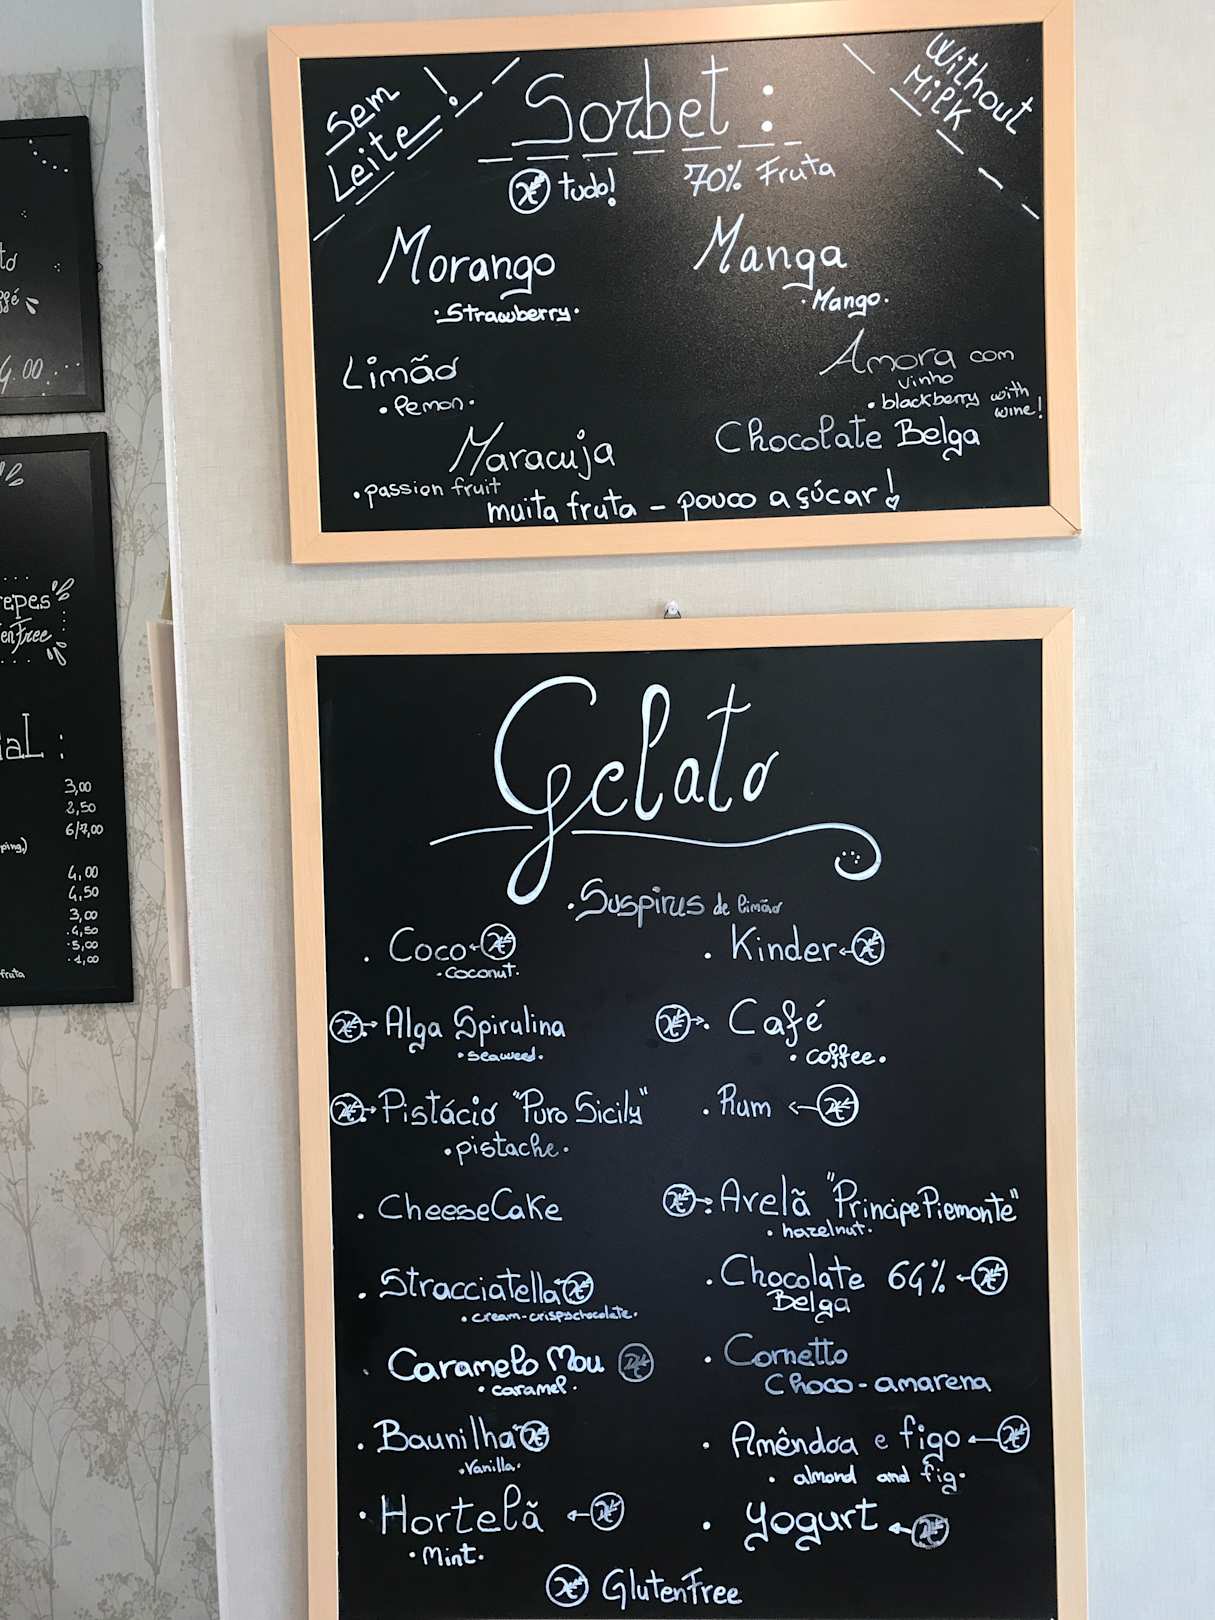 Sem
Leite!
Sorbet:
Without
Milk
tudo!
70% Fruta
Morango
·Strawberry·
Manga
·Mango·
Limão
·lemon·
Amora com
vinho
·blackberry with
wine!
Maracuja
·passion fruit
Chocolate Belga
muita fruta - pouco açúcar!
Gelato
·Suspirus de limão
·Coco
·coconut·
·Kinder
Alga Spirulina
·seaweed·
·Café
·coffee·
Pistácio "Puro Sicily"
·pistache·
·Rum
·CheeseCake
Avelã "Principe Piemonte"
·hazelnut·
·Stracciatella
·cream-crispychocolate·
·Chocolate 64%
Belga
·Caramelo Mou
·caramel·
·Cornetto
Choco-amarena
·Baunilha
·Vanilla·
·Amêndoa e figo
·almond and fig·
·Hortelã
·Mint·
·Yogurt
GlutenFree
4.00
3,00
2,50
6/7,00
4,00
4,50
3,00
·4,50
·5,00
·1,00